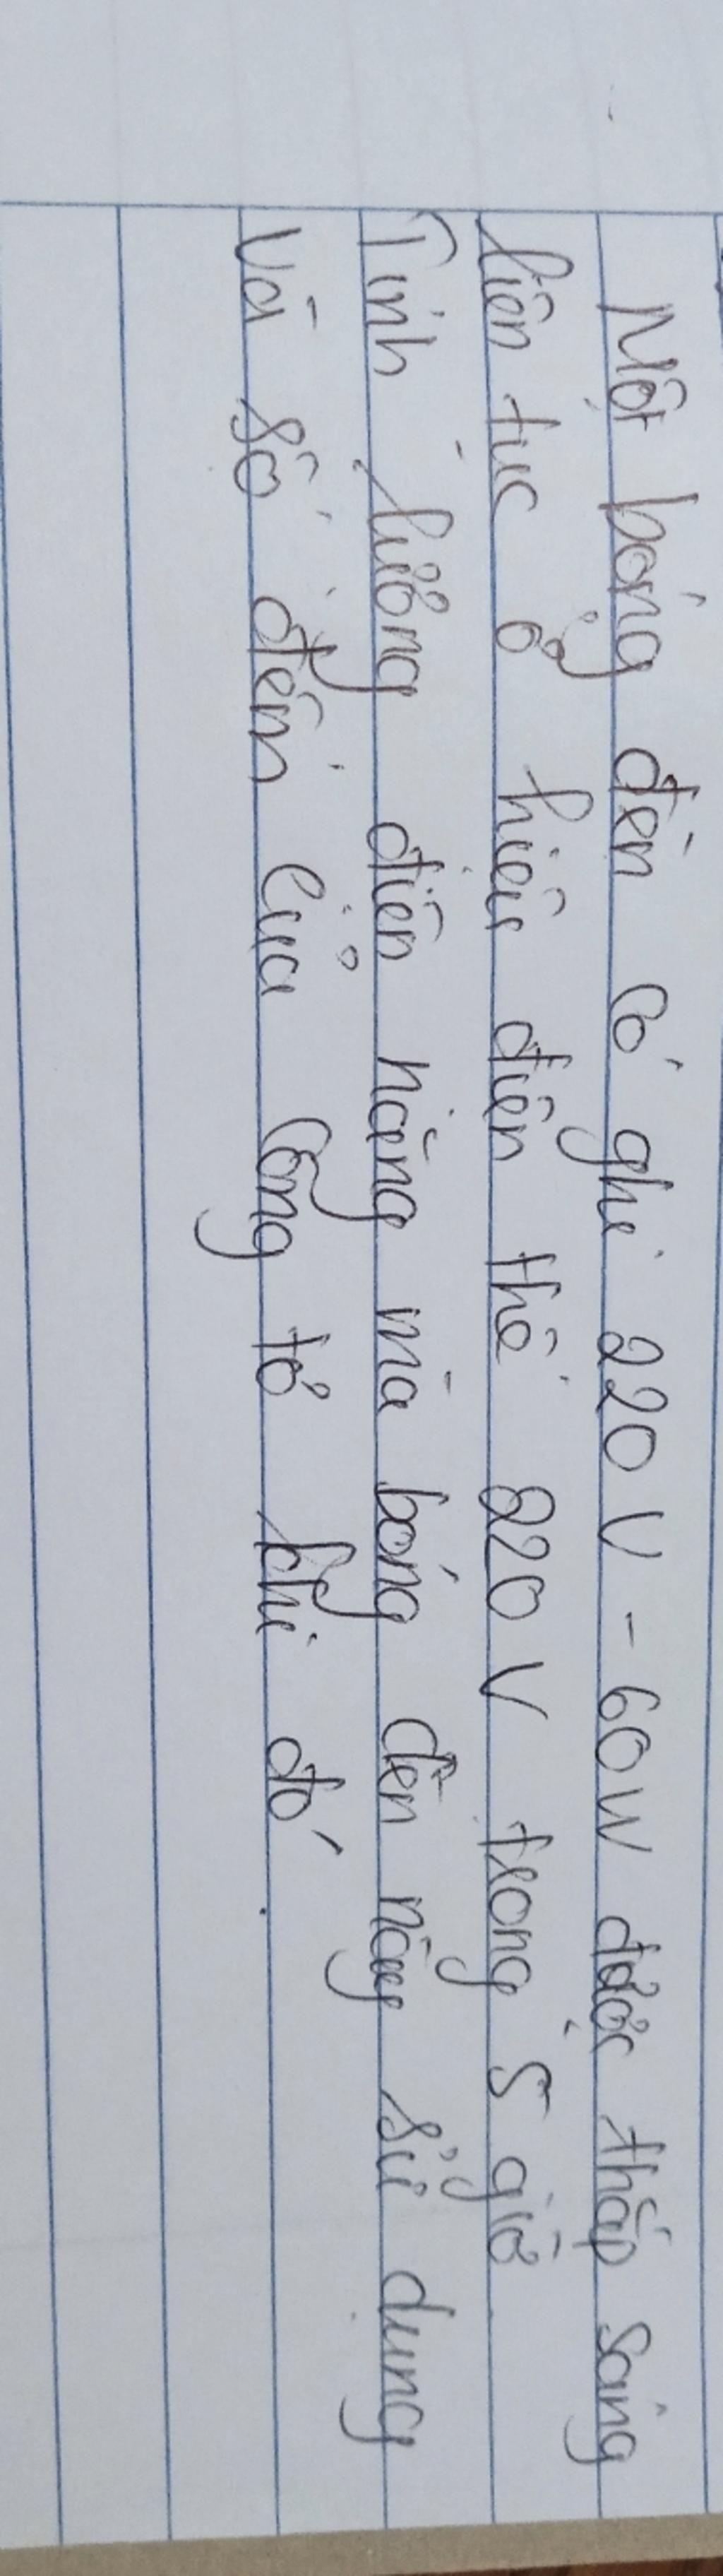 Một bóng đèn có ghi 220V - 60W được thắp sáng
liên tục ở hiệu điện thế 220V trong 5 giờ.
Tính lượng điện năng mà bóng đèn này sử dụng
và số đếm của công tơ khi đó.